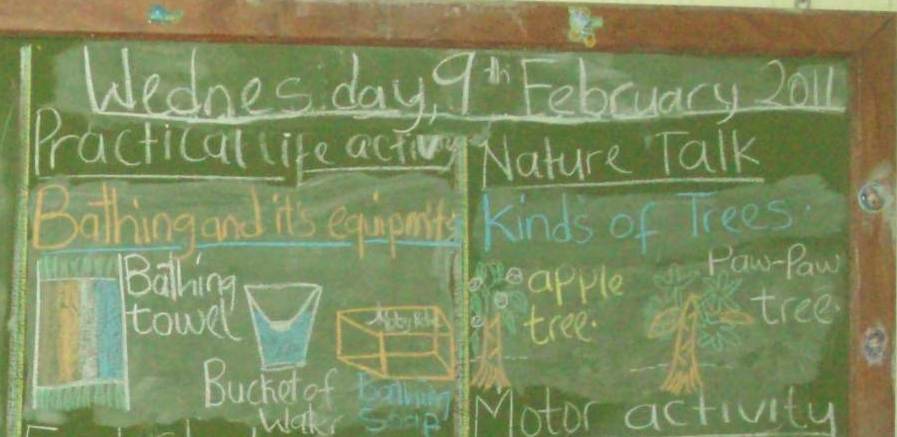 Wednesday, 9th February 2011
Practical life activ
Bathing and it's equipmts
Bathing
towel
Bucket of
Water
Bathing
Soap
Nature Talk
Kinds of Trees.
apple
tree.
Paw-Paw
tree.
Motor activity